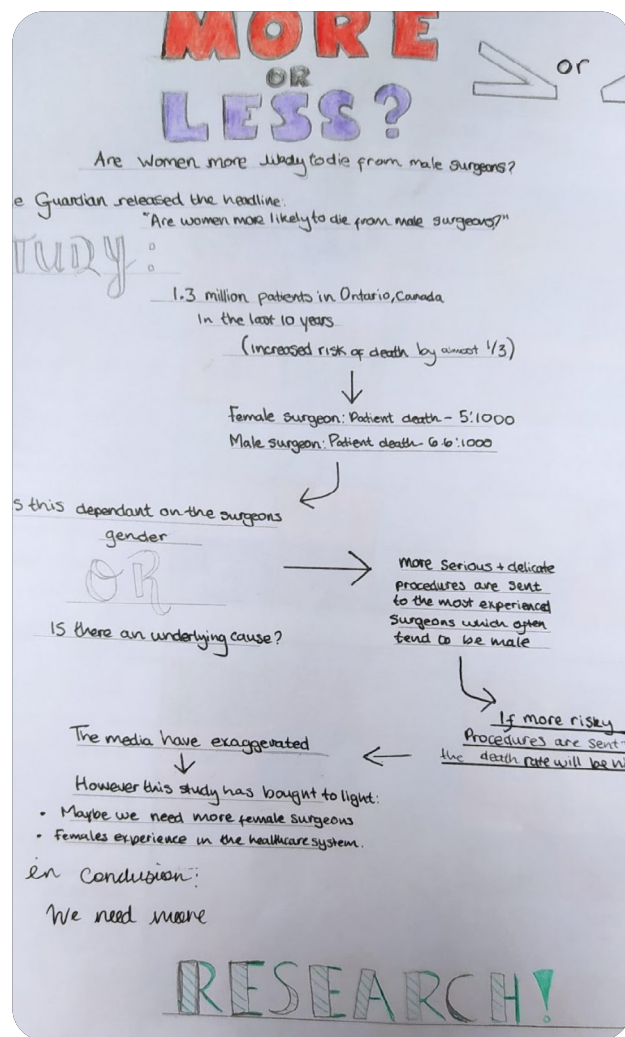 MORE
OR
LESS?
or
Are Women more likely to die from male surgeons?
e Guardian released the headline:
"Are women more likely to die from male surgeons?"
TUDY:
1.3 million patients in Ontario, Canada
In the last 10 years
(increased risk of death by almost 1/3)
Female surgeon: Patient death - 5:1000
Male surgeon: Patient death - 6.6:1000
s this dependant on the surgeons
gender
OR
Is there an underlying cause?
More serious + delicate
procedures are sent
to the most experienced
surgeons which often
tend to be male
If more risky
Procedures are sent
the death rate will be hi
The media have exaggerated
However this study has bought to light:
• Maybe we need more female surgeons
• Females experience in the healthcare system.
in conclusion:
We need more
RESEARCH!